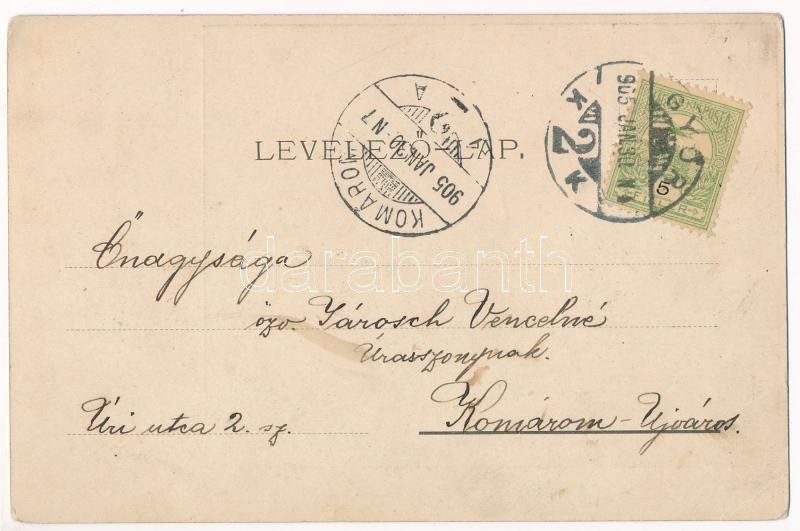 LEVELEZŐ-LAP.
KOMÁROM
905 JAN. 10. N7
A
GYŐR
905 JAN. 10. N
K 2 K
5
Őnagysága
özv. Járosch Vencelné
Úrasszonynak.
Úri utca 2. sz.
Komárom-Újváros.
darabanth